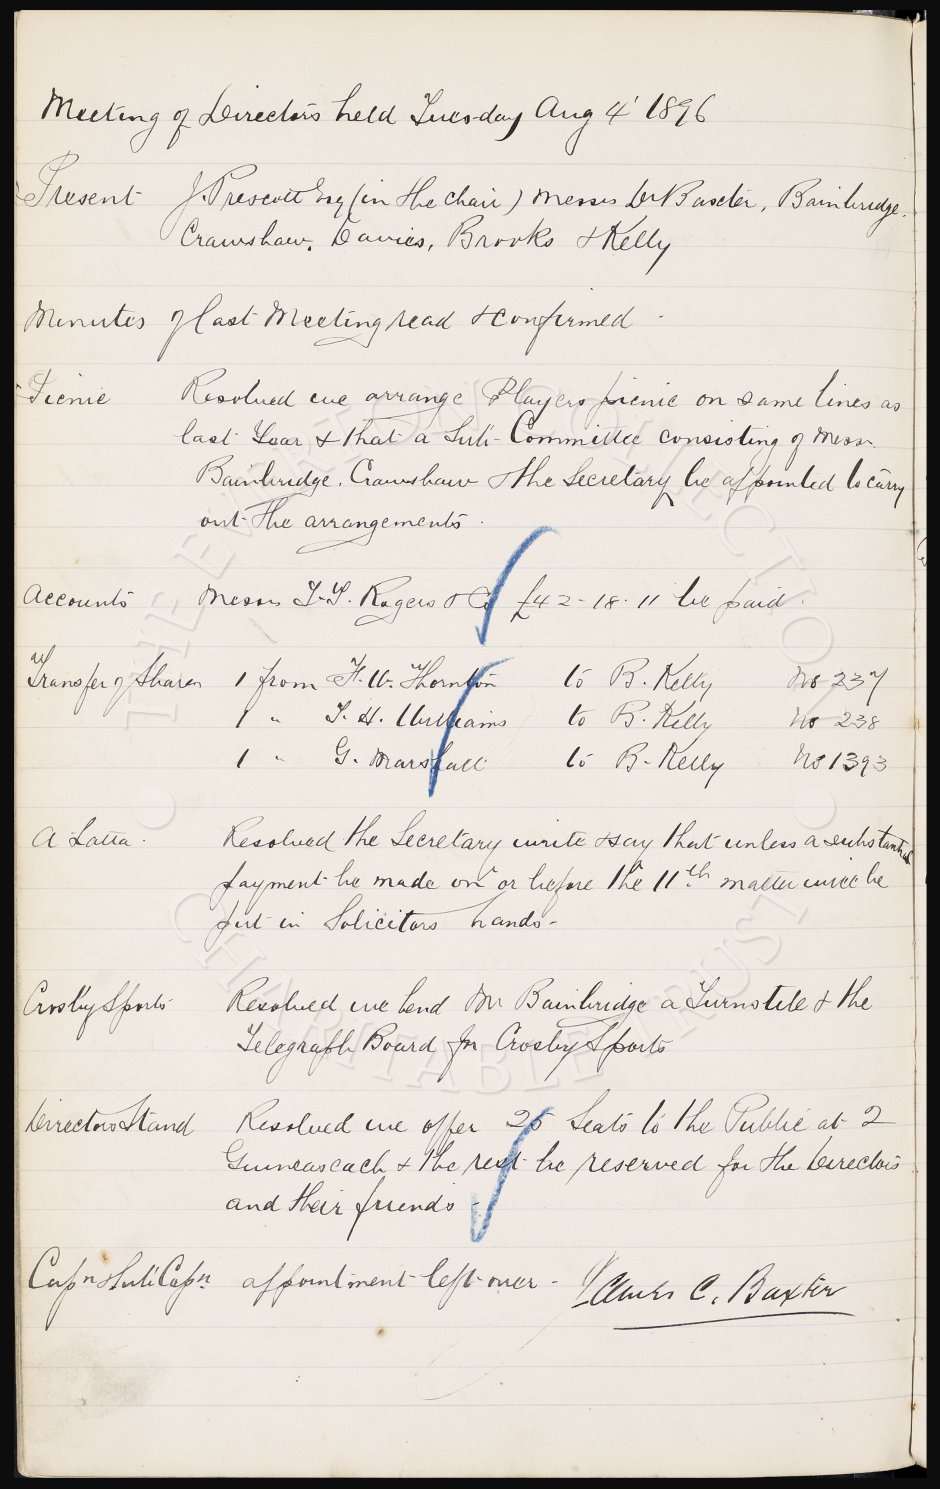 Meeting of Directors held Tuesday Aug 4 1896
Present J. Prescott Esq (in the chair) Messrs Dr Baxter, Bainbridge.
Crawshaw, Davies, Brooks & Kelly
Minutes of last Meeting read & confirmed
Picnic Resolved we arrange Players picnic on same lines as
last Year & that a Sub-Committee consisting of Messrs
Bainbridge. Crawshaw & the Secretary be appointed to carry
out the arrangements.
Accounts Messrs Rogers & Co £42-18-11 be paid.
Transfer of Shares 1 from Thornton to B. Kelly No 237
1 " H. Williams to B. Kelly No 238
1 " G. Marshall to B. Kelly No 1393
A Latta. Resolved the Secretary write & say that unless a substantial
payment be made on or before the 11th matter will be
put in Solicitors hands-
Crosby Sports Resolved we lend Mr Bainbridge a Turnstile & the
Telegraph Board for Crosby Sports
Directors Stand Resolved we offer 25 Seats to the Public at 2
Guineas each & the rest be reserved for the Directors
and their friends -
Capn & Sub Capn appointment left over - James C. Baxter
THE EVERTON COLLECTION
CHARITABLE TRUST